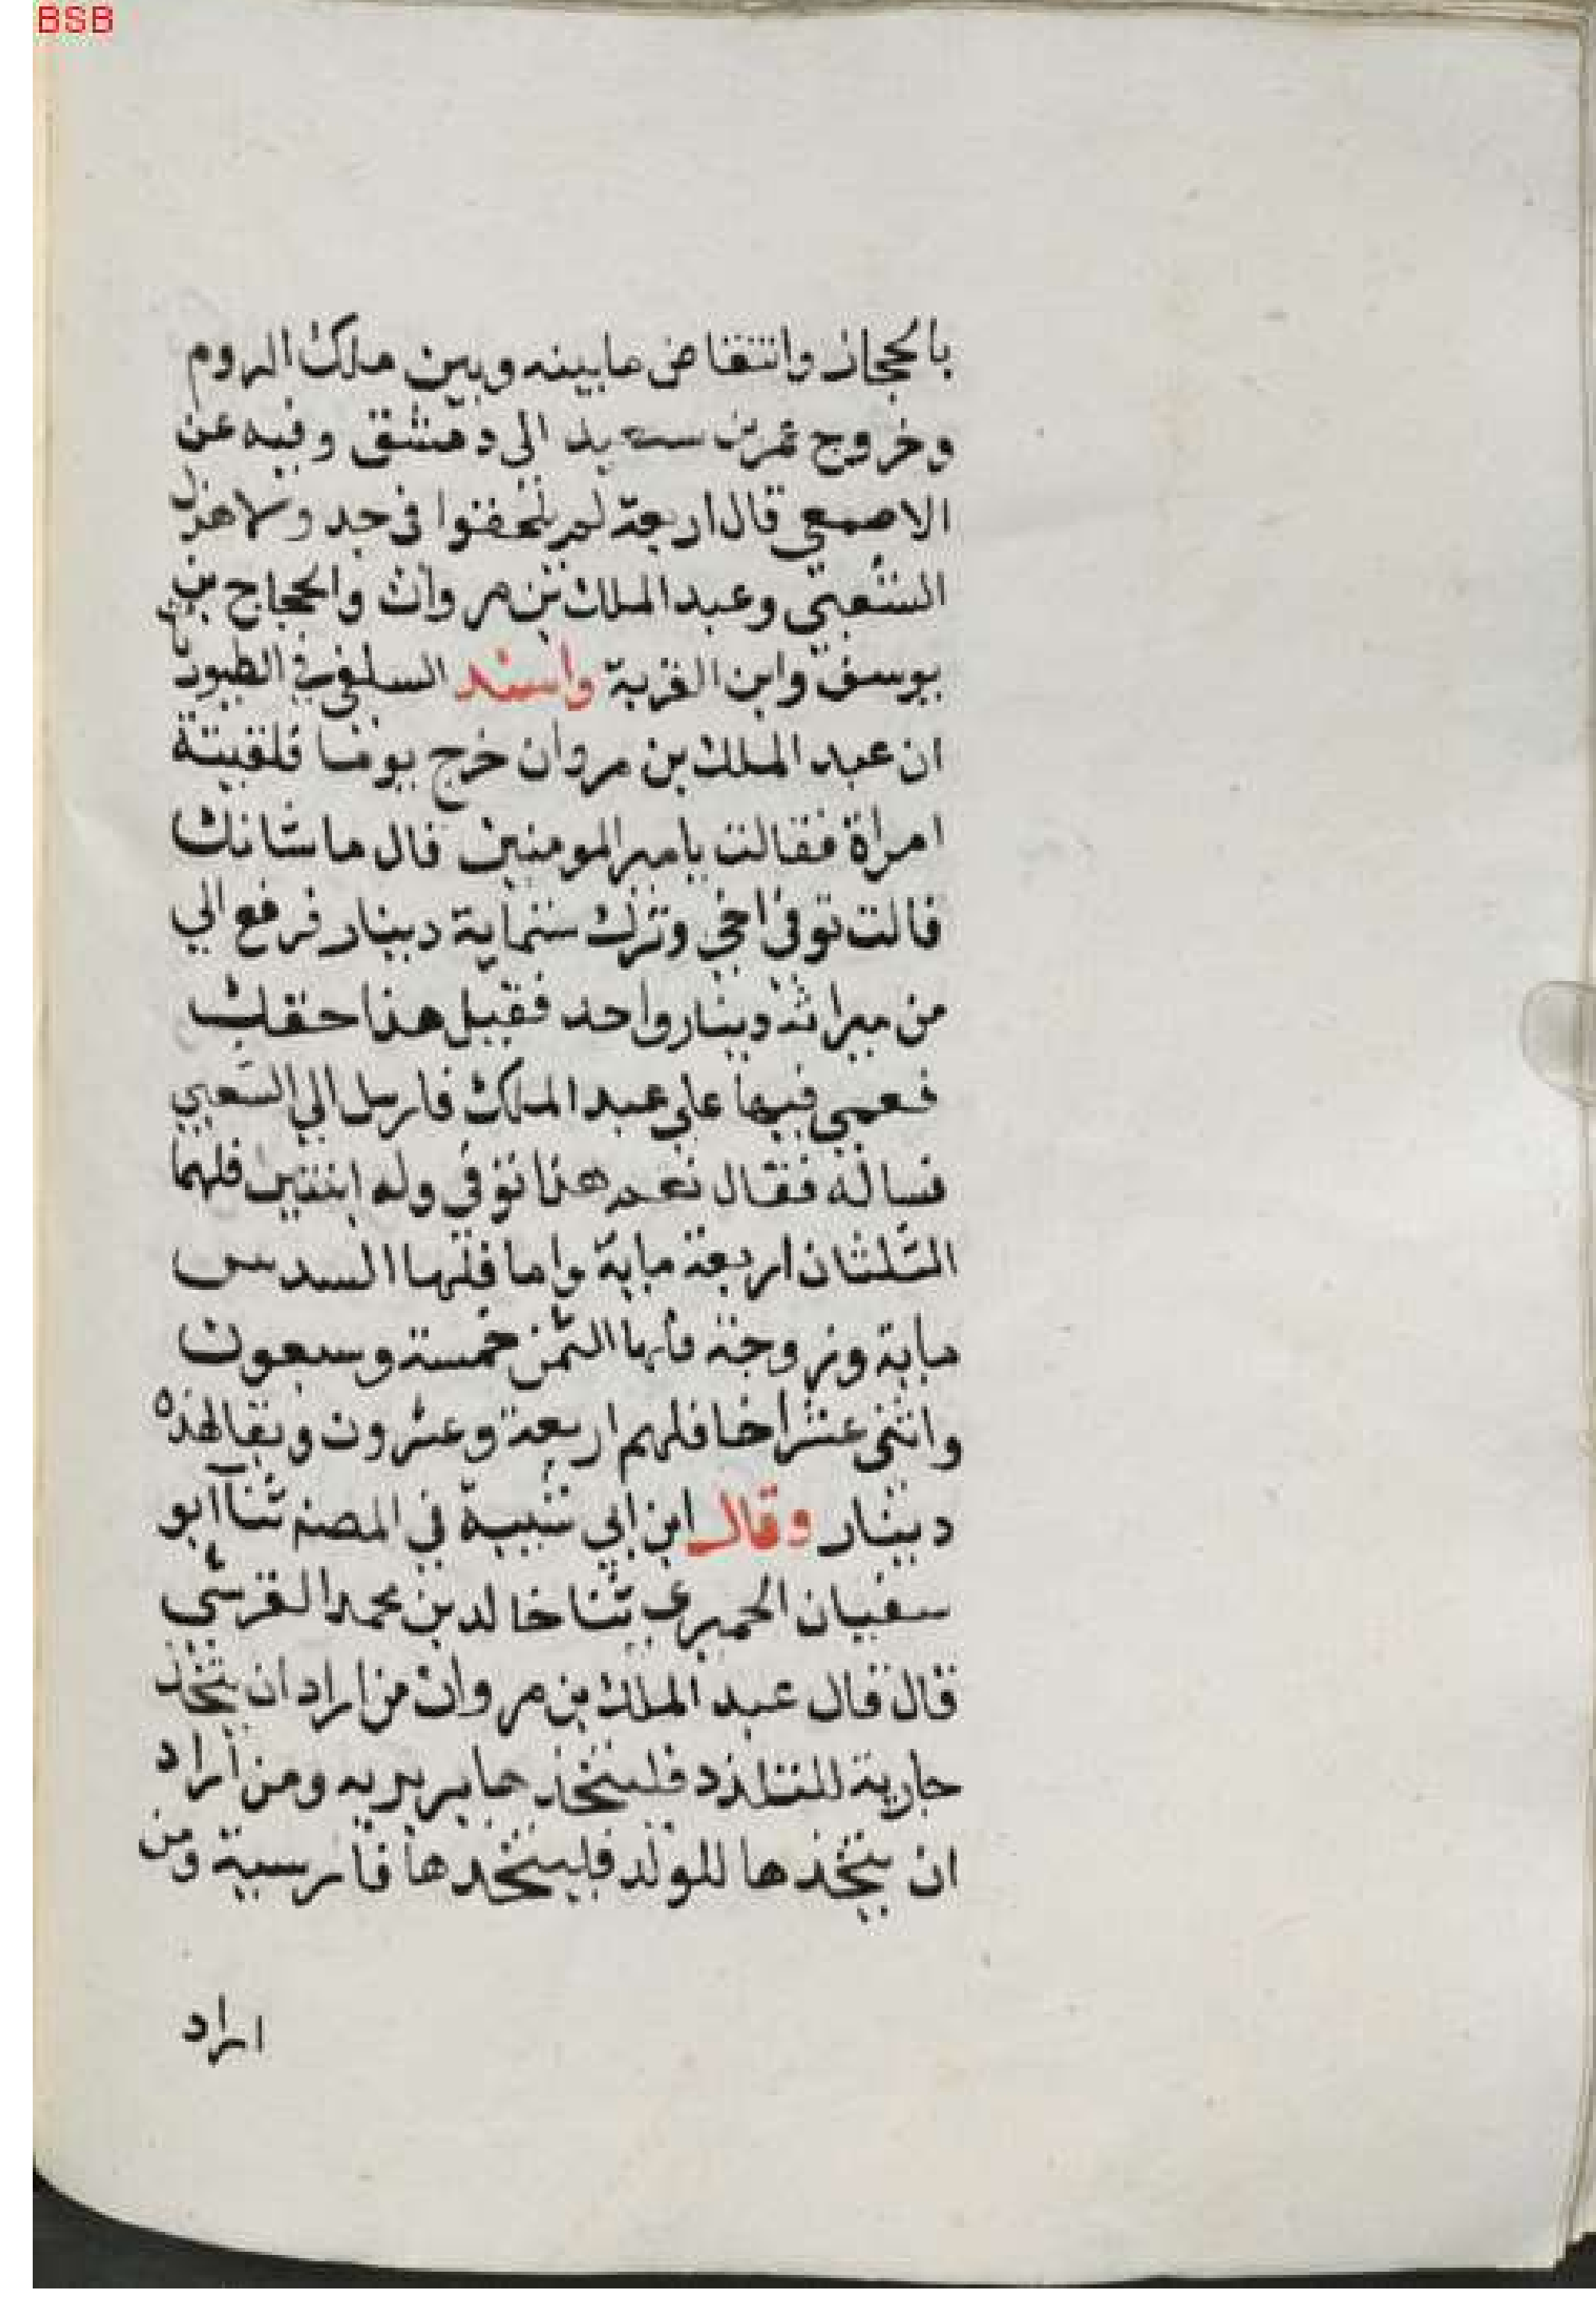 BSB
بالحجاز وانتقاض مابينه وبين ملك الروم
وخروج عمر بن سعيد الى دمشق وفيه عن
الاصمعي قال اربعة لم يلحفنوا في جد ولا هذل
الشعبي وعبد الملك بن مروان والحجاج بن
يوسف وابن القرية واسند السلفي في الطيوريات
ان عبد الملك بن مروان خرج يوما فلقيته
امراة فقالت يامير المومنين قال ما شانك
قالت توفي اخي وترك ستماية دينار فرفع الي
من ميراثه دينار واحد فقيل هذا حقك
فعمي فيها علي عبد الملك فارسل الي الشعبي
فساله فقال نعم هذا توفي وله ابنتين فلهما
الثلثان اربعة ماية واما فلها السدس
ماية وزوجة فلها الثمن خمسة وسبعون
واثني عشر اخا فلهم اربعة وعشرون وبقا لهذه
دينار وقال ابن ابي شيبة في المصنف ثنا ابو
سفيان الحميري ثنا خالد بن محمد القرشي
قال قال عبد الملك بن مروان من اراد ان يتخذ
جارية للتلذذ فليتخذها بربريه ومن اراد
ان يتخذها للولد فليتخذها فارسية ومن
اراد